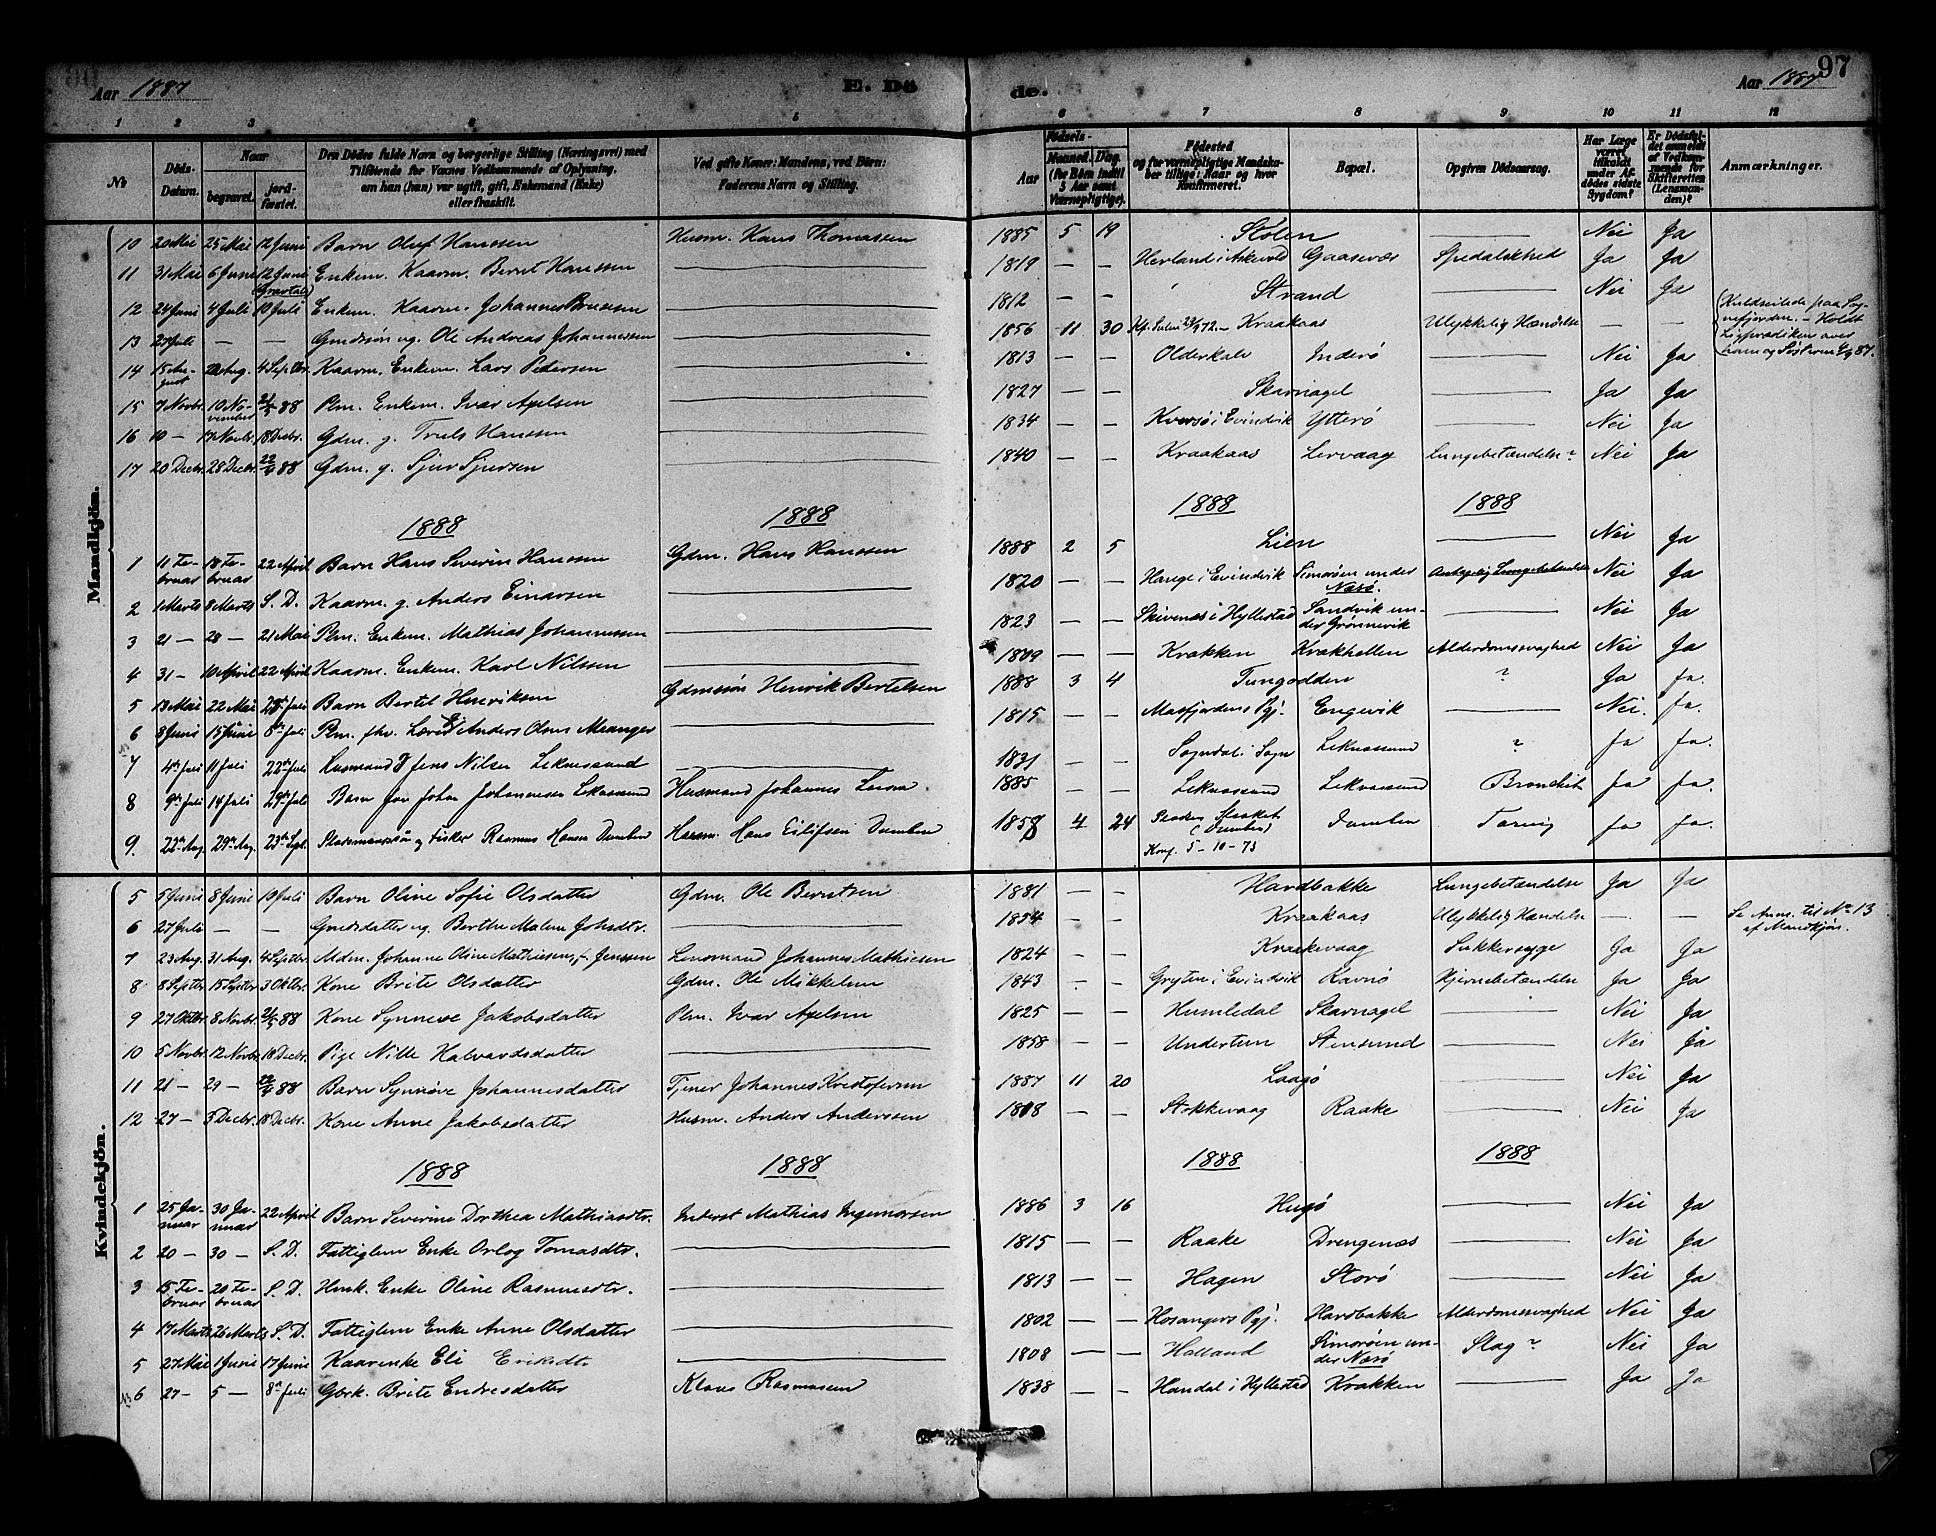 Aar 1887
E. Dö
de.
Aar 1887
97
1 2 3 4 5 6 7 8 9 10 11 12
No
Döds-Datum.
Naar
begravet.
jord-fæstet.
Den Dödes fulde Navn og borgerlige Stilling (Næringsvei) med
Tilföiende for Voxnes Vedkommende af Oplysning,
om han (hun) var ugift, gift, Enkemand (Enke)
eller fraskilt.
Ved gifte Koner: Mandens, ved Börn:
Faderens Navn og Stilling.
Födsels-
Aar
Maaned. Dag.
(for Börn indtil 5 Aar samt Værnepligtige).
Födested
og for værnepligtige Mandska-
ber tillige: Naar og hvor
Konfirmeret.
Bopæl.
Opgiven Dödsaarsag.
Har Læge været tilkaldt under Afdödes sidste Sygdom?
Er Dödsfaldet anmeldt af Vedkommende for Skifteretten (Lensmanden)?
Anmærkninger.
Mandkjön.
10 20 Mai 25 Mai 12 Juni Barn Oluf Hanssen Husm. Hans Thomassen 1885 5 19 Stolen — Nei Ja
11 31 Mai 6 Juni 12 Juni (Gravtale) Enkem. Kaarm. Bernt Hanssen — 1819 — — Herland i Askevold Gaasevær Spedalskhed Ja Ja
12 24 Juni 4 Juli 10 Juli Enkem. Kaarm. Johannes — 1812 — — Strand Nei Ja
13 27 Juli — — Gmdssøn ug. Ole Andreas Johannessen — 1856 11 30 Kf. Sulen 29/9 72. – Kraakaas Ulykkelig Hændelse — — Kuldseilede paa Sognefjorden. – Holdt Ligprædiken over ham og Søsteren
14 15 August Aug. 4 Septbr. Kaarm. Enkem. Lars Pedersen — 1813 — — Olderkalv Inderø — Nei Ja
15 7 Novbr. 10 November 21/5 88 Plm. Enkem. Ivar Axelsen — 1827 — — Skarnagel — Ja Ja
16 10 — 17 Novbr. 18 Decbr. Gdm. g. Truls Hanssen — 1834 — — Kversø i Evindvik Ytterø — Nei Ja
17 20 Decbr. 28 Decbr. 22/4 88 Gdm. g. Sjur Sjursen — 1840 — — Kraakaas Lervaag Lungebetændelse? Nei Ja
1888 1888 1888 1888
1 11 Februar 18 Februar 22 April Barn Hans Severin Hanssen Gdm. Hans Hanssen 1888 2 5 Lien — Nei Ja
2 1 Marts 8 Marts S. D. Kaarm. g. Anders Einarsen — 1820 — — Hauge i Evindvik Simorøen under Nærø. Lungebetændelse Nei Ja
3 21 — 28 — 21 Mai Plm. Enkem. Mathias Johannessen — 1823 — — Skivenes i Hyllestad Sandvik under Grønnevik — Nei Ja
4 31 — 10 April 22 April Kaarm. Enkem. Karl Nilssen — 1809 — — Krakken Krakhellen Alderdomssvaghed Nei Ja
5 13 Mai 22 Mai Juli Barn Bertel Henriksen Gdmssøn Henrik Bertelsen 1888 3 4 Tungodden ? Ja Ja.
6 8 Juni 15 Juni 8de Juli Plm. fhv. Lærer Anders Olsen Meanger — 1815 — — Masfjordens Pgj. Engevik — Nei. Ja.
7 4de Juli 11 Juli 22de Juli Husmand Jens Nilsen Leknessund — 1831 — — Sogndal i Sogn Leknessund ? Ja Ja.
8 9de Juli 14 Juli 29de Juli Barn Johan Johannesen Leknessund Husmand Johannes 1885 Leknessund Leknessund Bronchit Ja Ja.
9. 22de Aug. 29de Aug. 23de Sept. og Fisker Rasmus Hansen Dumben Husm. Hans Eilifsen Dumben 1858 4 24 (Dumben) Konf. 5 – 10 – 73 Dumben Tæring Ja Ja.
Kvindekjön.
5 5 Juni 8 Juni 10 Juli Barn Oline Sofie Olsdatter Gdm. Ole Berntsen 1881 — — Hardbakke Lungebetændelse Ja Ja
6 27 Juli — — Gmdsdatter ug. Berthe Malene Johsdtr. — 1854 — — Kraakaas Ulykkelig Hændelse — — Se Anm. til No 13 af Mandkjön.
7 23 Aug. 31 Aug. 4 Septbr. Mdm. Johanne Oline Mathiesen, f. Jenssen Lensmand Johannes Mathiesen 1824 — — Kraakevaag Sukkersyge Ja Ja
8 8 Septbr 15 Septbr 3 Oktbr. Kone Brite Olsdatter Gdm. Ole Mikkelsen 1843 — — Gryten i Evindvik Ravnø Hjernebetændelse Ja Ja
9 27 Oktbr. 8 Novbr. 21/5 88 Kone Synneve Jakobsdatter Plm. Ivar Axelsen 1825 — — Humledal Skarnagel — Nei Ja
10 5 Novbr. 12 Novbr. 18 Decbr. Pige Nille Halvardsdatter — 1858 — — Undertun Stensund — Nei Ja
11 21 — 29 — 22/4 88 Barn Synnøve Johannesdatter Tjener Johannes Kristofersen 1887 11 20 Laagø — Nei Ja
12 27 — 5 Decbr. 18 Decbr. Kone Anne Jakobsdatter Husm. Anders Anderssen 1808 — — Stokkevaag Raake — Nei Ja
1888 1888 1888 1888
1 25 Januar 30 Januar 22 April Barn Severine Dorthea Mathiasdtr. Inderst Mathias Ingemorsen 1886 3 16 Hugø — Nei Ja
2 20 — 30 — S. D. Fattiglem Enke Orlog Tomasdtr. — 1815 — — Raake Drengenæs — Nei Ja
3 15 Februar 20 Februar S. D. Husk. Enke Oline Rasmusdtr. — 1813 — — Hagen Storø — Nei Ja
4 17 Marts 26 Marts S. D. Fattiglem Enke Anne Olsdatter — 1802 — — Hosangers Pgj. Hardbakke Alderdomssvaghed Nei Ja
5 27 Mai 1 Juni 17 Juni Kaarenke Eli Eriksdtr — 1808 — — Halland Simorøen under Nærø Slag? Nei Ja
6 27 — 5 — 8de Juli Gbrk. Brite Endresdatter Klaus Rasmussen 1838 — — Handal i Hyllestad Krakken Ja Ja